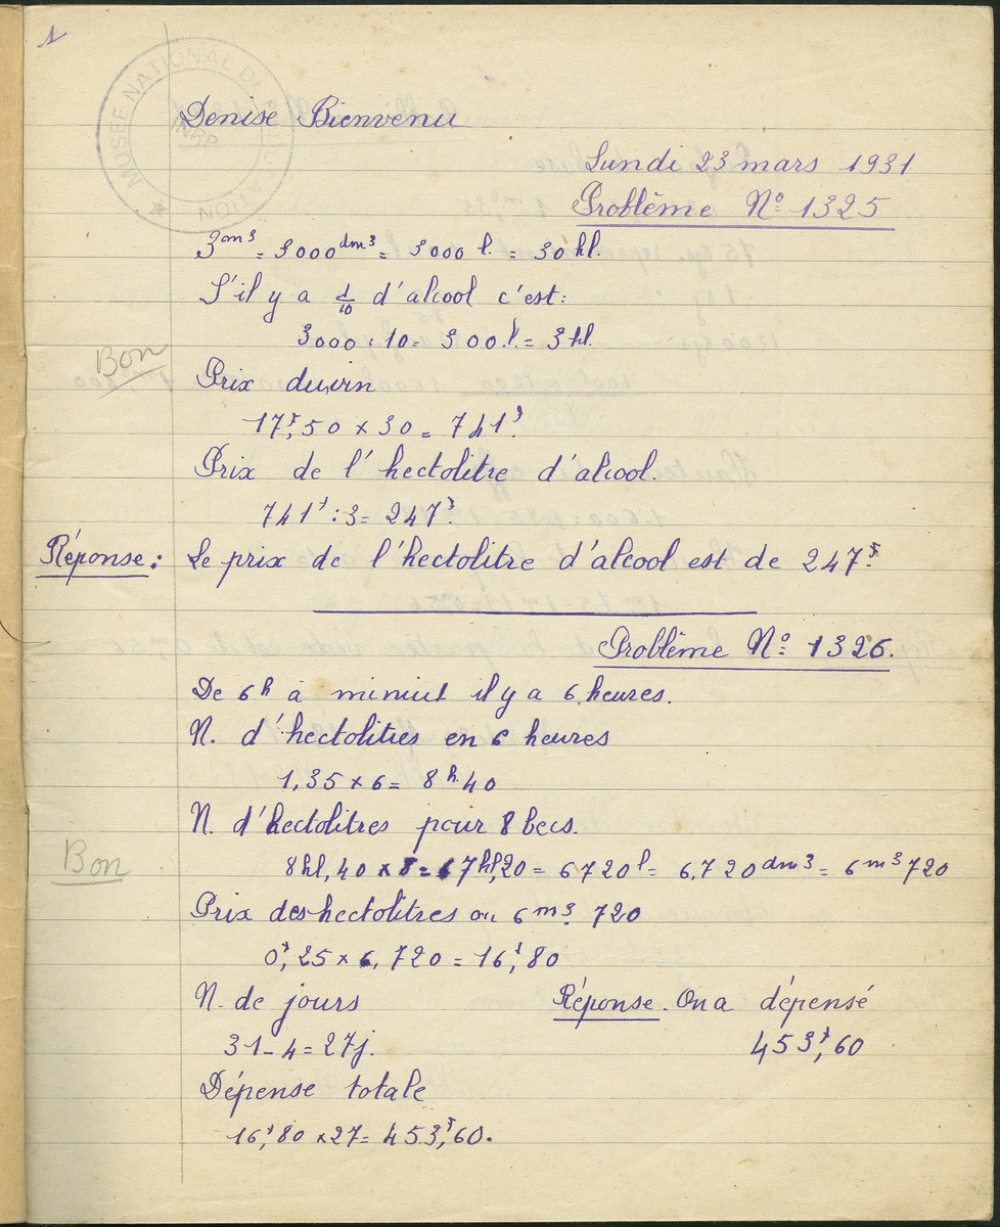 1
MUSÉE NATIONAL DE L'ÉDUCATION
INRP
Denise Bienvenu
Lundi 23 mars 1931
Problème Nº 1325
3m³ = 3000dm³ = 3000 l. = 30 hl.
S'il y a 1/10 d'alcool c'est:
3000 : 10 = 300 l. = 3 hl.
Bon
Prix du vin
17f,50 × 30 = 741f.
Prix de l'hectolitre d'alcool.
741f : 3 = 247f.
Réponse : Le prix de l'hectolitre d'alcool est de 247f.
Problème Nº 1326.
De 6h à minuit il y a 6 heures.
N. d'hectolitres en 6 heures
1,35 × 6 = 8 h. 40
N. d'hectolitres pour 8 becs.
8hl,40 × 8 = 67hl,20 = 6720l = 6.720dm³ = 6m³720
Bon
Prix des hectolitres ou 6m³. 720
0f,25 × 6,720 = 16f,80
N. de jours
Réponse. On a dépensé
31 - 4 = 27j.
453f,60
Dépense totale
16f,80 × 27 = 453f,60.